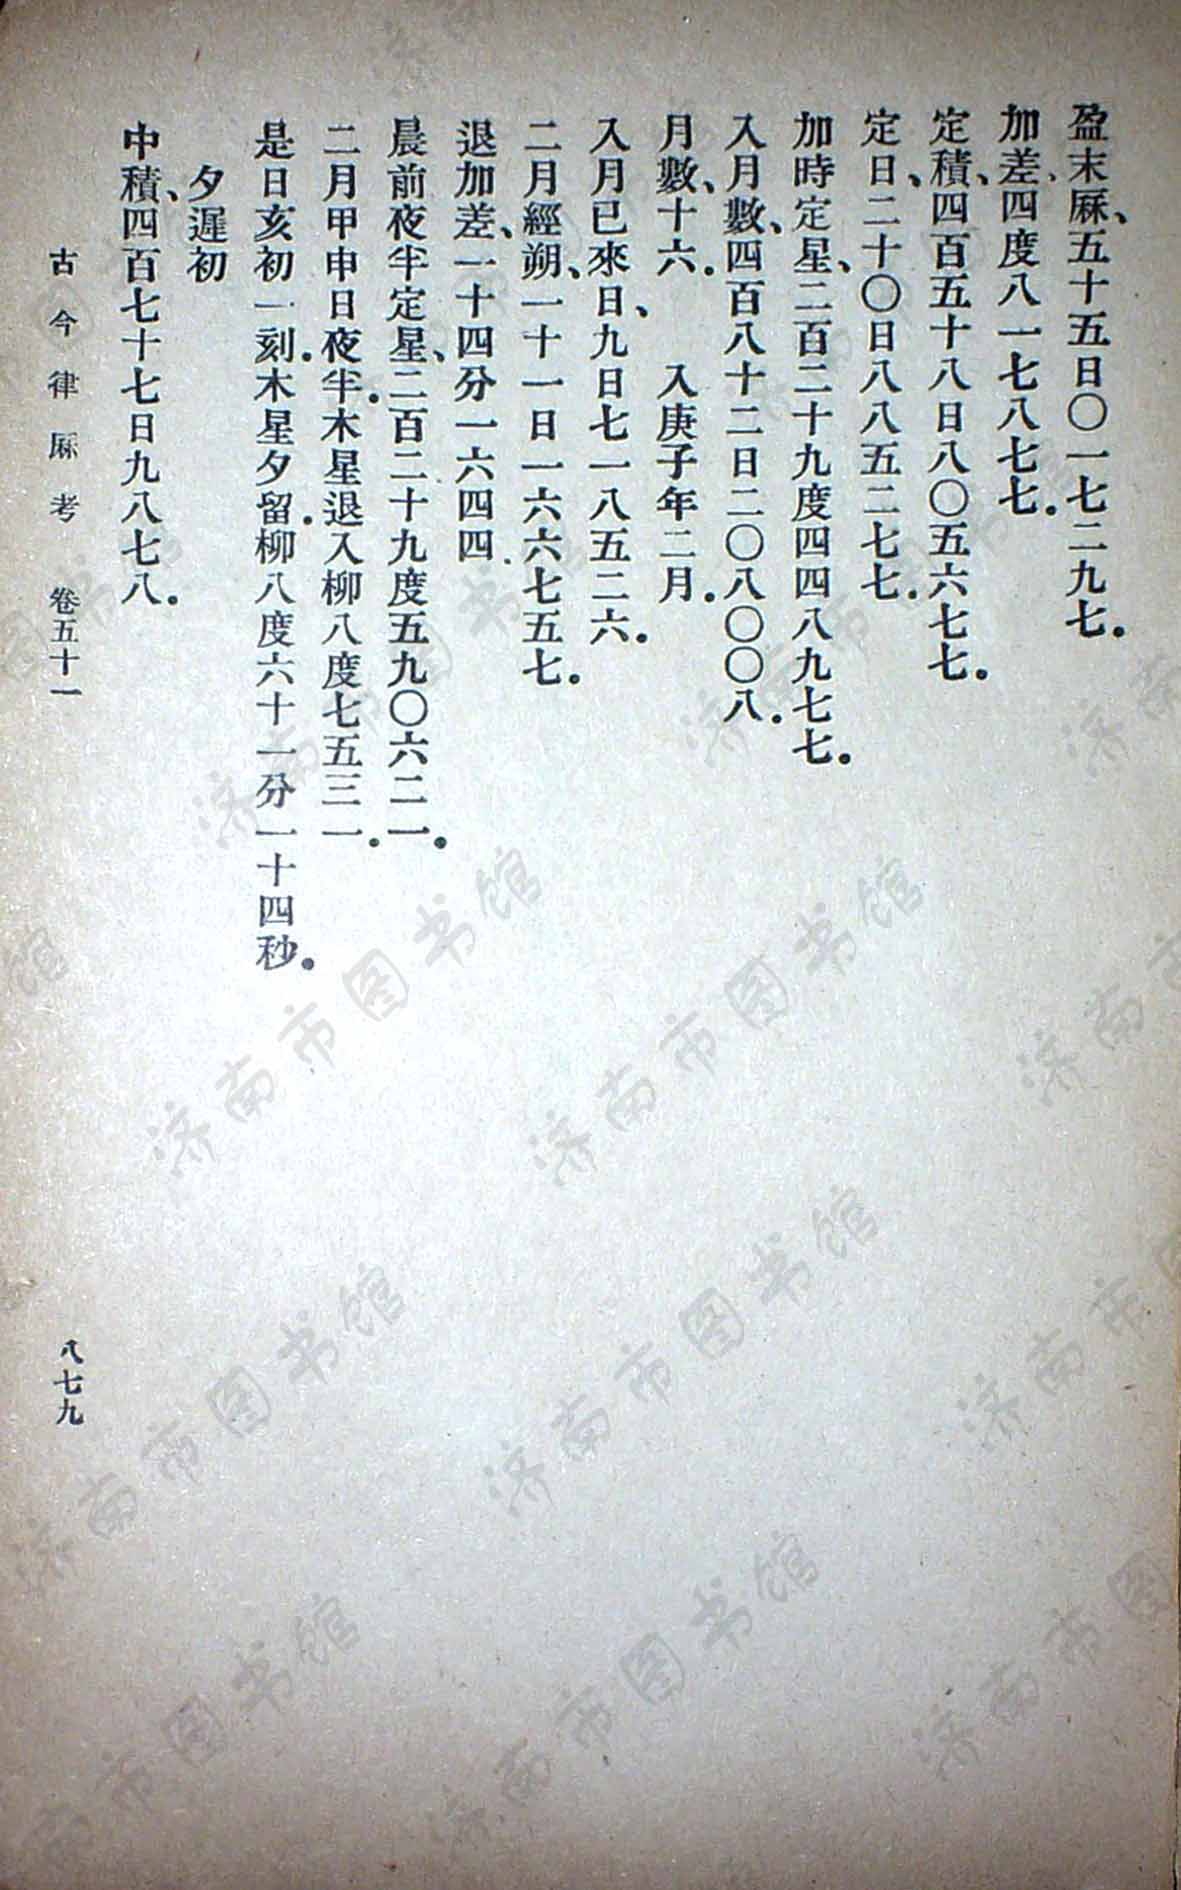 盈末厤、五十五日〇一七二九七．
加差、四度八一七八七七．
定積、四百五十八日八〇五六七七．
定日、二十〇日八八五二七七．
加時定星、二百二十九度四四八九七七．
入月數、四百八十二日二〇八〇〇八．
月數、十六．　入庚子年二月．
入月已來日、九日七一八五二六．
二月經朔、一十一日一六六七五七．
退加差、一十四分一六四四．
晨前夜半定星、二百二十九度五九〇六二一．
二月甲申日夜半．木星退入柳八度七五三一．
是日亥初一刻．木星夕留．柳八度六十一分一十四秒．
夕遲初
中積、四百七十七日九八七八．
古今律厤考　卷五十一
八七九
济南市图书馆